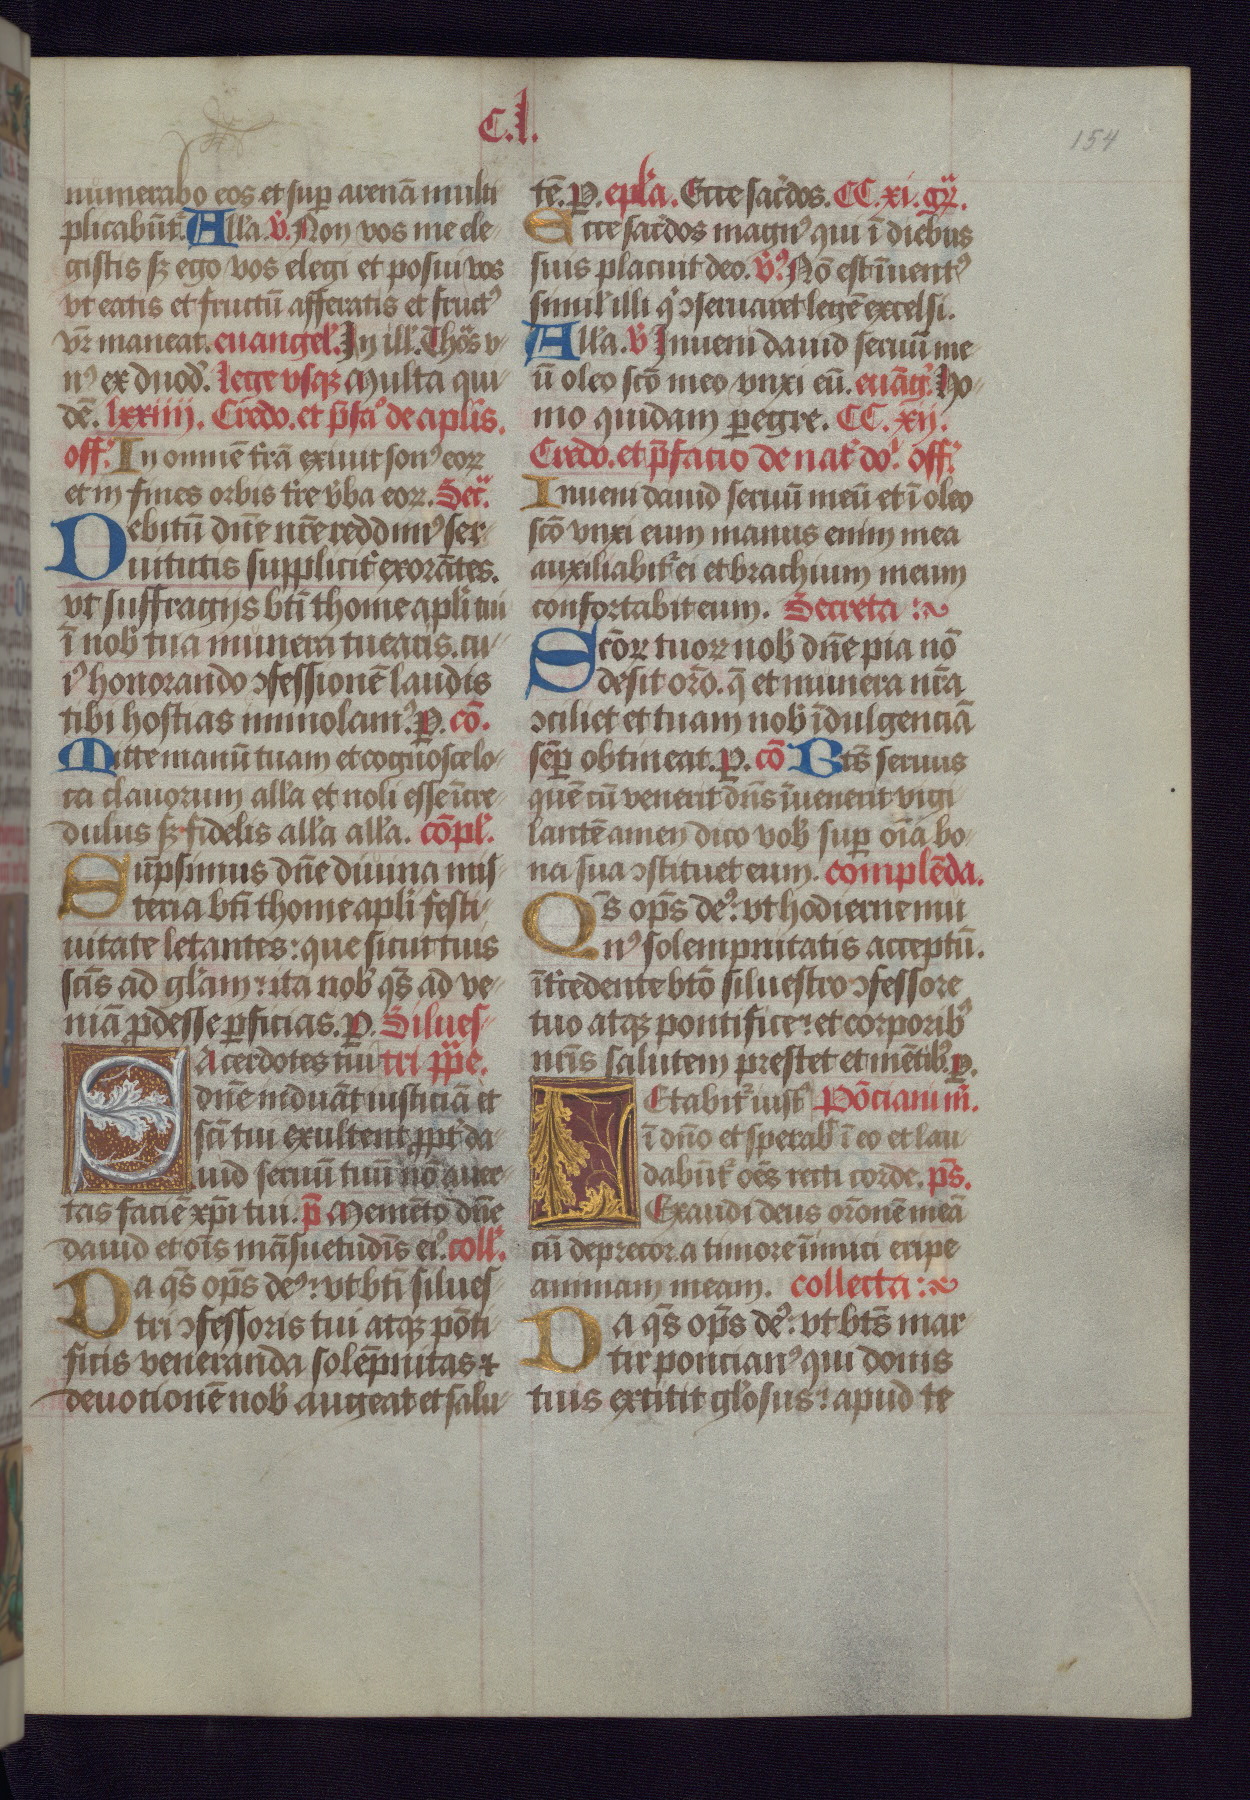 C.l.
154
numerabo eos et sup arenā multi
plicabūt͛. Alľa. v͛. Non vos me ele-
gistis sꝫ ego vos elegi et posui vos
vt eatis et fructū afferatis et fructꝰ
vr̄ maneat. euangel͛. In ill͛. Thōs v-
nꝰ ex duod͛. lege vsqꝫ Multa qui-
dē. lxxiiii. Credo. et p̄fa͛ de apl͛is.
off͛. In omnē tr̄ā exiuit sonꝰ eoꝝ
et in fines orbis tr͛e v͛ba eoꝝ. Secͣ.
Debitū dn̄e nr̄e reddimꝰ ser-
uitutis suppliciť exorātes.
vt suffragijs bt̄i thome apl͛i tui
ī nob͛ tua munera tuearis. cu-
iꝰ honorando ɔfessionē laudis
tibi hostias immolamꝰ. P. cō.
Mitte manū tuam et cognosce lo-
ca clauorum alľa et noli esse īcre-
dulus sꝫ fidelis alľa alľa. cōpl͛.
Sūpsimus dn̄e diuina mis-
teria bt̄i thome apl͛i festi-
uitate letantes: que sicut tuis
scīs ad gl͛am: ita nob͛ qs̄ ad ve-
niā ꝓdesse ꝑficias. P. Silues-
Sacerdotes tui tri pp̄e.
dn̄e induāt iusticiā et
scī tui exultent ꝓpť da-
uid seruū tuū nō auer-
tas faciē xp̄i tui. p̄ Memēto dn̄e
dauid et oīs māsuetudīs eiꝰ. coll͛.
Da qs̄ op̄s deꝰ: vt bt̄i silues-
tri ɔfessoris tui atqꝫ pōti-
ficis veneranda solēpnitas ⁊
deuotionē nob͛ augeat et salu-
tē. P. epl͛a. Ecce sac͛dos. CC. xi. gͬ.
Ecce sac͛dos magnꝰ qui ī diebus
suis placuit deo. v͛ꝰ Nō est īuentꝰ
simil͛ illi q͛ ɔseruaret legē excelsi.
Alľa. v͛ Inueni dauid seruū me-
ū oleo scō meo vnxi eū. euāg͛. Ho-
mo quidam ꝑegre. CC. xij.
Credo. et p̄facio de nat͛ do͛. off͛.
Inueni dauid seruū meū et ī oleo
scō vnxi eum manus enim mea
auxiliabit͛ ei et brachium meum
confortabit eum. Secreta :~
Scōꝝ tuoꝝ nob͛ dn̄e pia nō
desit or̄o. q̄ et munera nr̄a
ɔciliet et tuam nob͛ īdulgenciā
sēꝑ obtineat. P. cō Bt̄s seruus
quē cū venerit dn̄s īuenerit vigi-
lantē amen dico vob͛ suꝑ oīa bo-
na sua ɔstituet eum. complēda.
Qs̄ op̄s deꝰ: vt hodierne mu-
nꝰ solempnitatis acceptū.
īťcedente bt̄o siluestro ɔfessore
tuo atqꝫ pontifice: et corporibꝰ
nr̄is salutem prestet et mētibꝰ. P.
Letabit͛ iustꝰ Pōciani m̄.
ī dn̄o et sperab͛ ī eo et lau-
dabūť oēs recti corde. ps̄.
Exaudi deus or̄onē meā
cū deprecor a timore īimici eripe
animam meam. collecta :~
Da qs̄ op̄s deꝰ: vt bt̄s mar-
tir poncianꝰ qui donis
tuis extitit gl͛osus: apud te